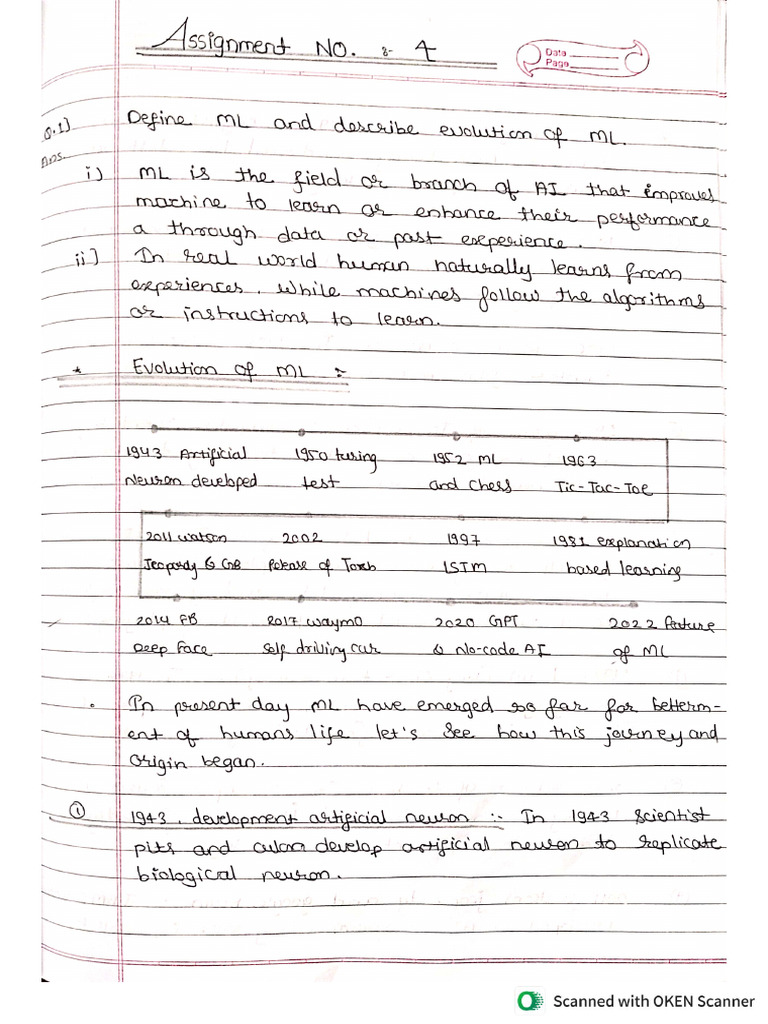 Assignment NO. :- 4
Date
Page
Q.1] Define ML and describe evolution of ML.
Ans.
i) ML is the field or branch of AI that improves
machine to learn or enhance their performance
a through data or past experience.
ii] In real world human naturally learns from
experiences. While machines follow the algorithms
or instructions to learn.
* Evolution of ML :-
1943 Artificial 1950 turing 1952 ML 1963
Neuron developed test and Chess Tic-Tac-Toe
2011 watson 2002 1997 1981 explanation
Jeopardy & GB Release of Torch LSTM based learning
2014 FB 2017 waymo 2020 GPT 2022 Feature
Deep Face self driving car & No-code AI of ML
In present day ML have emerged so far for betterm-
ent of humans life let's see how this journey and
origin began.
① 1943. development artificial neuron :- In 1943 scientist
pits and culon develop artificial neuron to replicate
biological neuron.
Scanned with OKEN Scanner